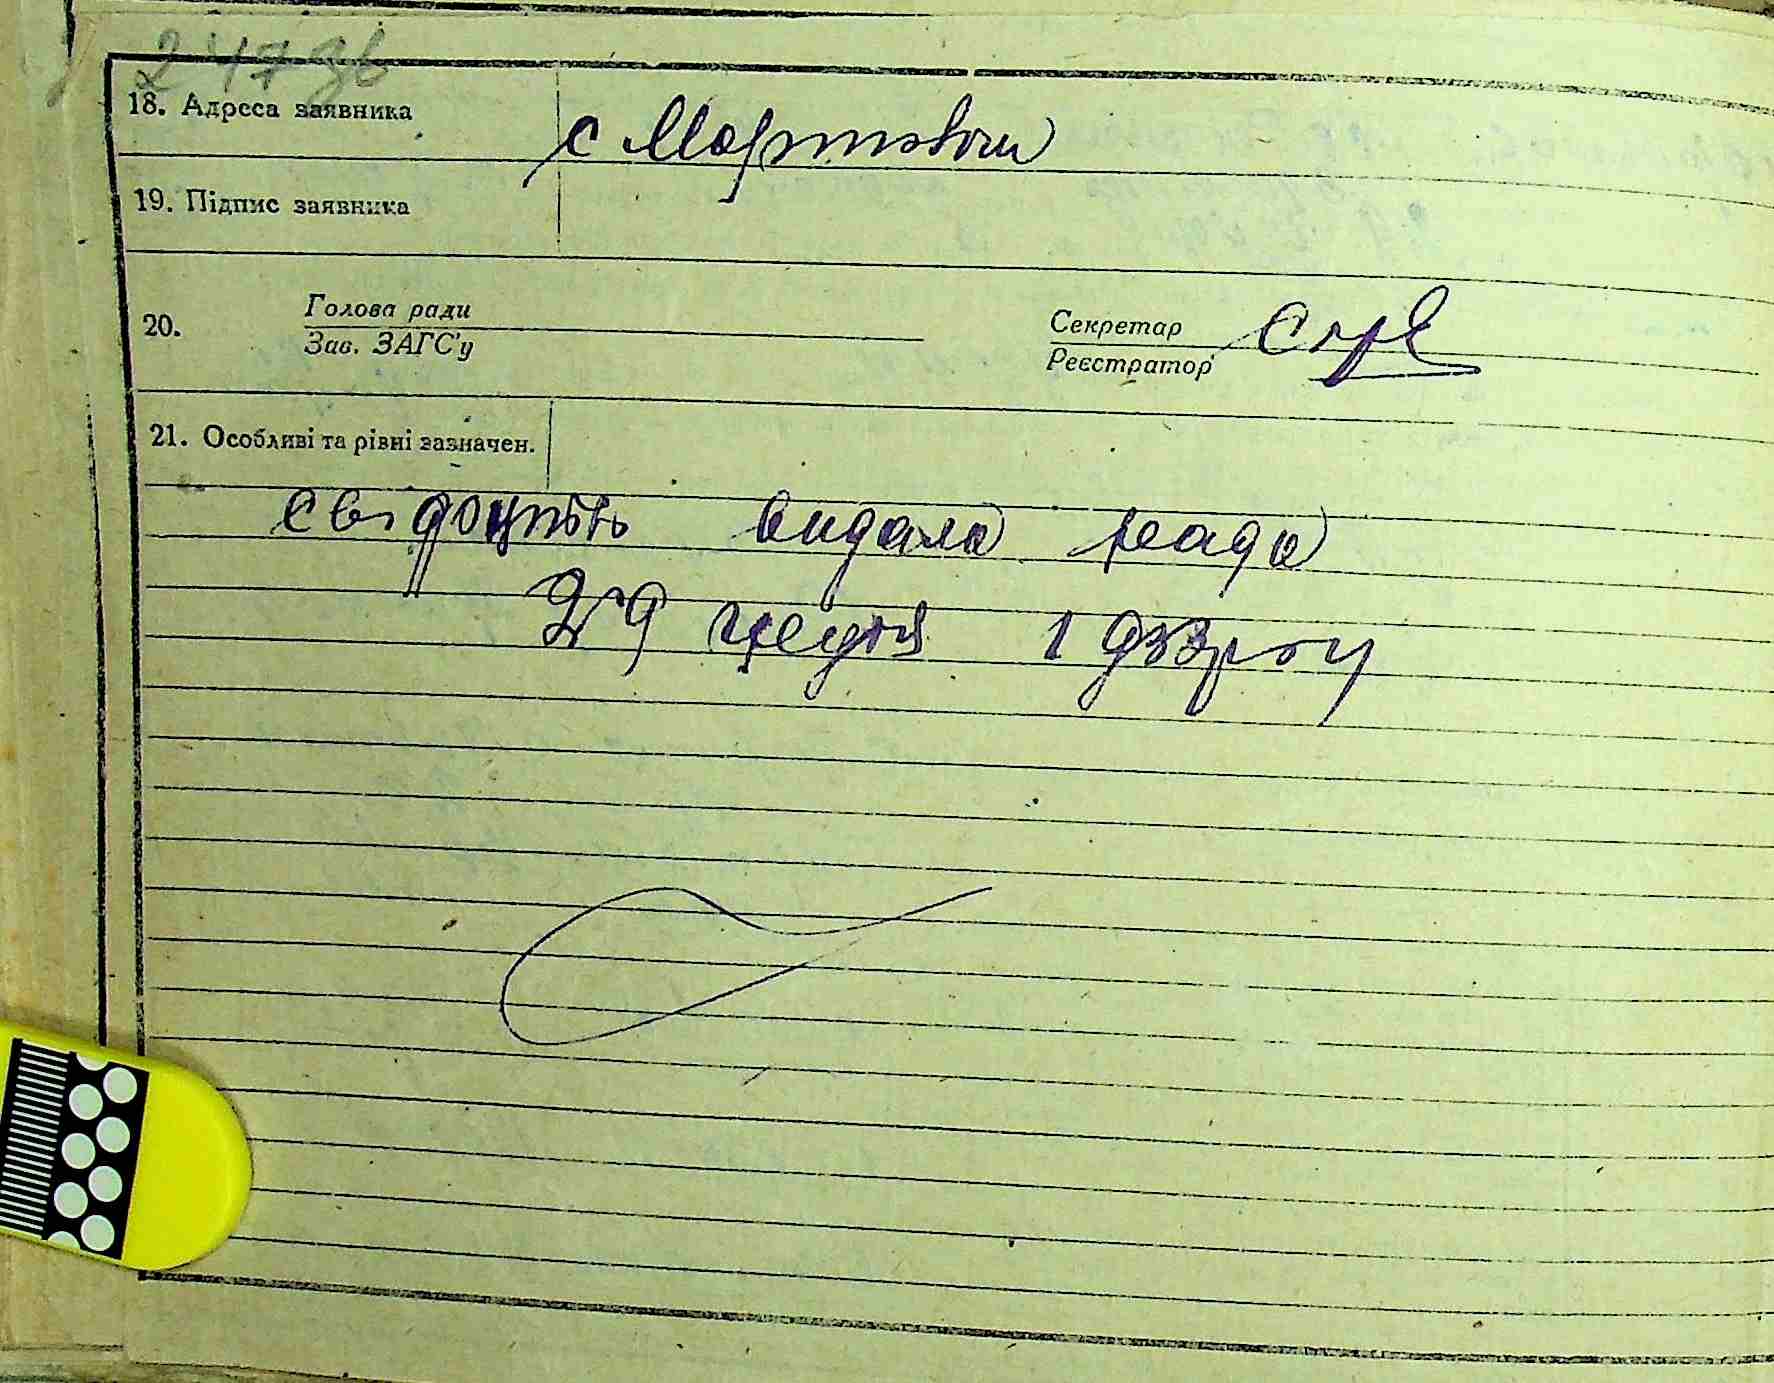 247 зв
18. Адреса заявника с Мартовичи
19. Підпис заявника
20. Голова ради
Зав. ЗАГС'у
Секретар
Реєстратор
21. Особливі та рівні зазначен.
свідоцтвь видала рада
29 грудня 1